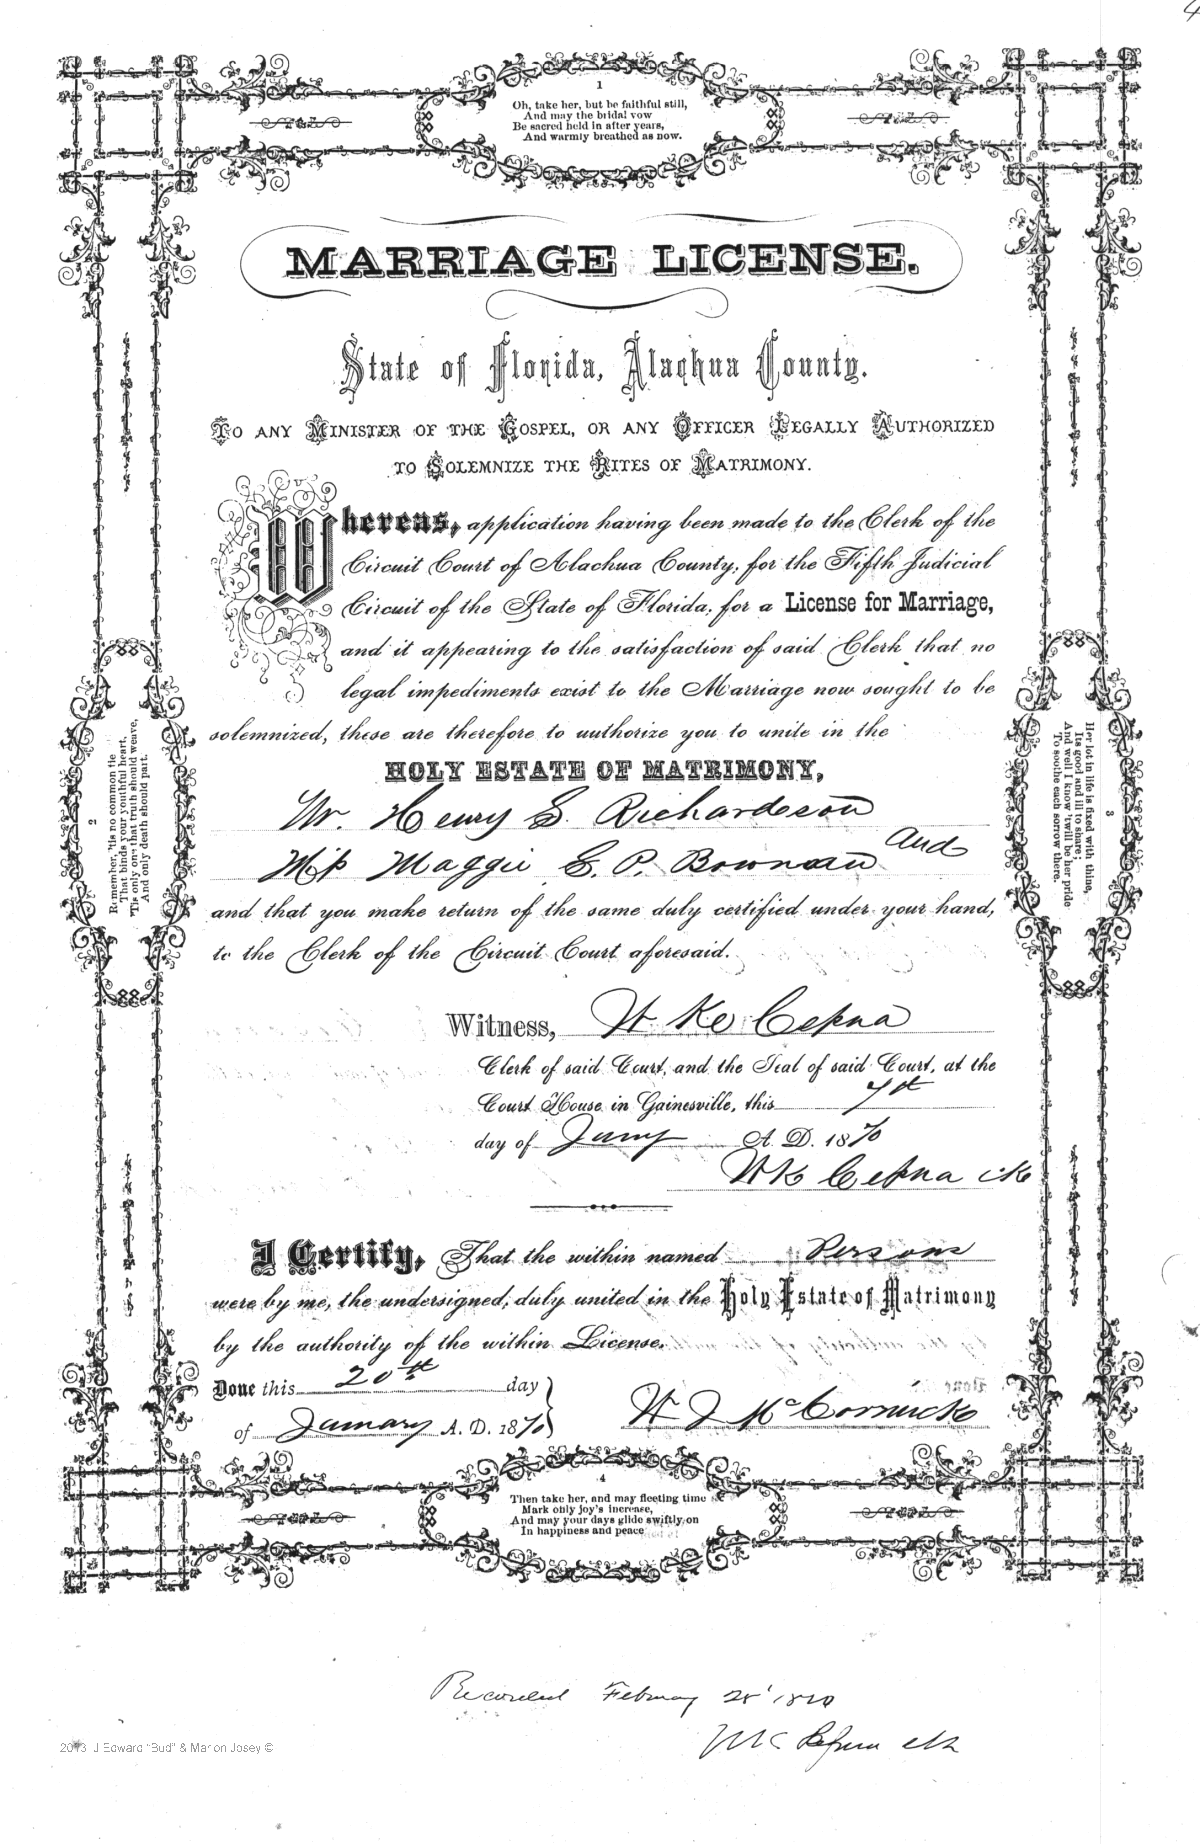 1
Oh, take her, but be faithful still,
And may the bridal vow
Be sacred held in after years,
And warmly breathed as now.
MARRIAGE LICENSE.
State of Florida, Alachua County.
TO ANY MINISTER OF THE GOSPEL, OR ANY OFFICER LEGALLY AUTHORIZED
TO SOLEMNIZE THE RITES OF MATRIMONY.
Whereas, application having been made to the Clerk of the
Circuit Court of Alachua County, for the Fifth Judicial
Circuit of the State of Florida, for a License for Marriage,
and it appearing to the satisfaction of said Clerk that no
legal impediments exist to the Marriage now sought to be
solemnized, these are therefore to authorize you to unite in the
HOLY ESTATE OF MATRIMONY,
Mr. Henry S. Richardson
and
Miss Maggie E. P. Bowman
and that you make return of the same duly certified under your hand,
to the Clerk of the Circuit Court aforesaid.
Witness,
Clerk of said Court, and the Seal of said Court, at the
Court House in Gainesville, this 7th
day of Jany A. D. 1870
I Certify, That the within named Persons
were by me, the undersigned, duly united in the Holy Estate of Matrimony
by the authority of the within License.
Done this 20th day
of January A. D. 1870
W J McCormick
2
Remember, 'tis no common tie
That binds your youthful heart,
'Tis only one that truth should weave,
And only death should part.
3
Her lot in life is fixed with thine,
Its good and ill to share;
And well I know 'twill be her pride
To soothe each sorrow there.
4
Then take her, and may fleeting time
Mark only joy's increase,
And may your days glide swiftly on
In happiness and peace
Recorded February 28 1870
2013 J Edward "Bud" & Marion Josey ©
4